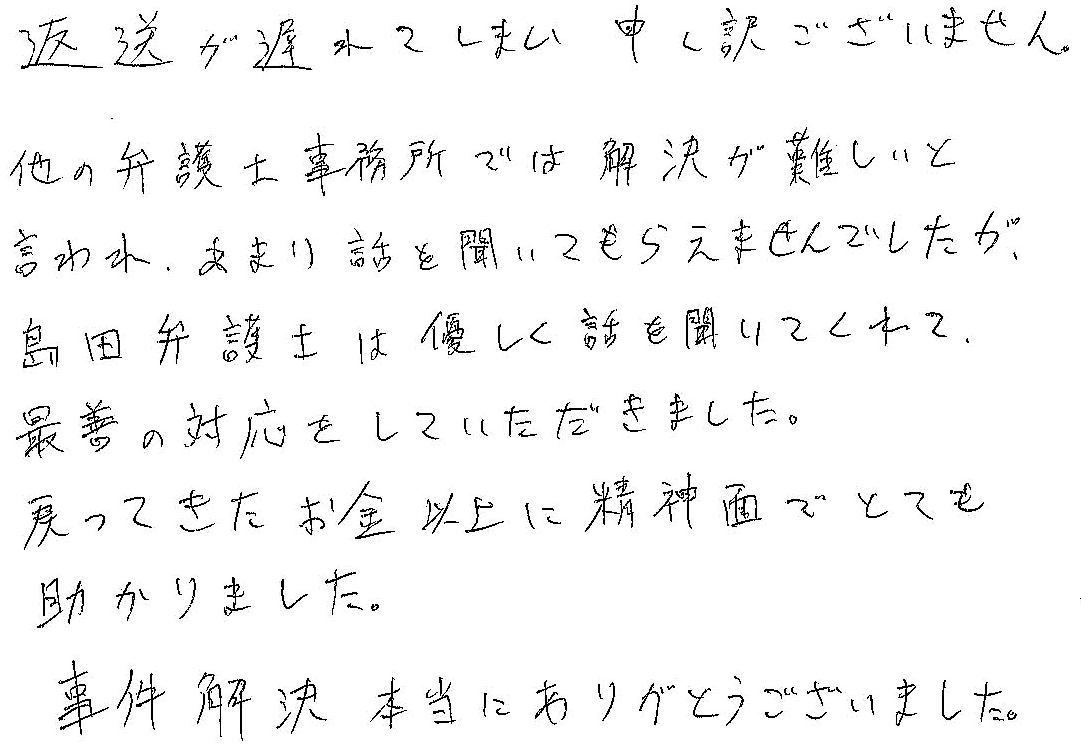 返送が遅れてしまい申し訳ございません。
他の弁護士事務所では解決が難しいと
言われ、あまり話を聞いてもらえませんでしたが、
島田弁護士は優しく話を聞いてくれて、
最善の対応をしていただきました。
戻ってきたお金以上に精神面でとても
助かりました。
事件解決本当にありがとうございました。